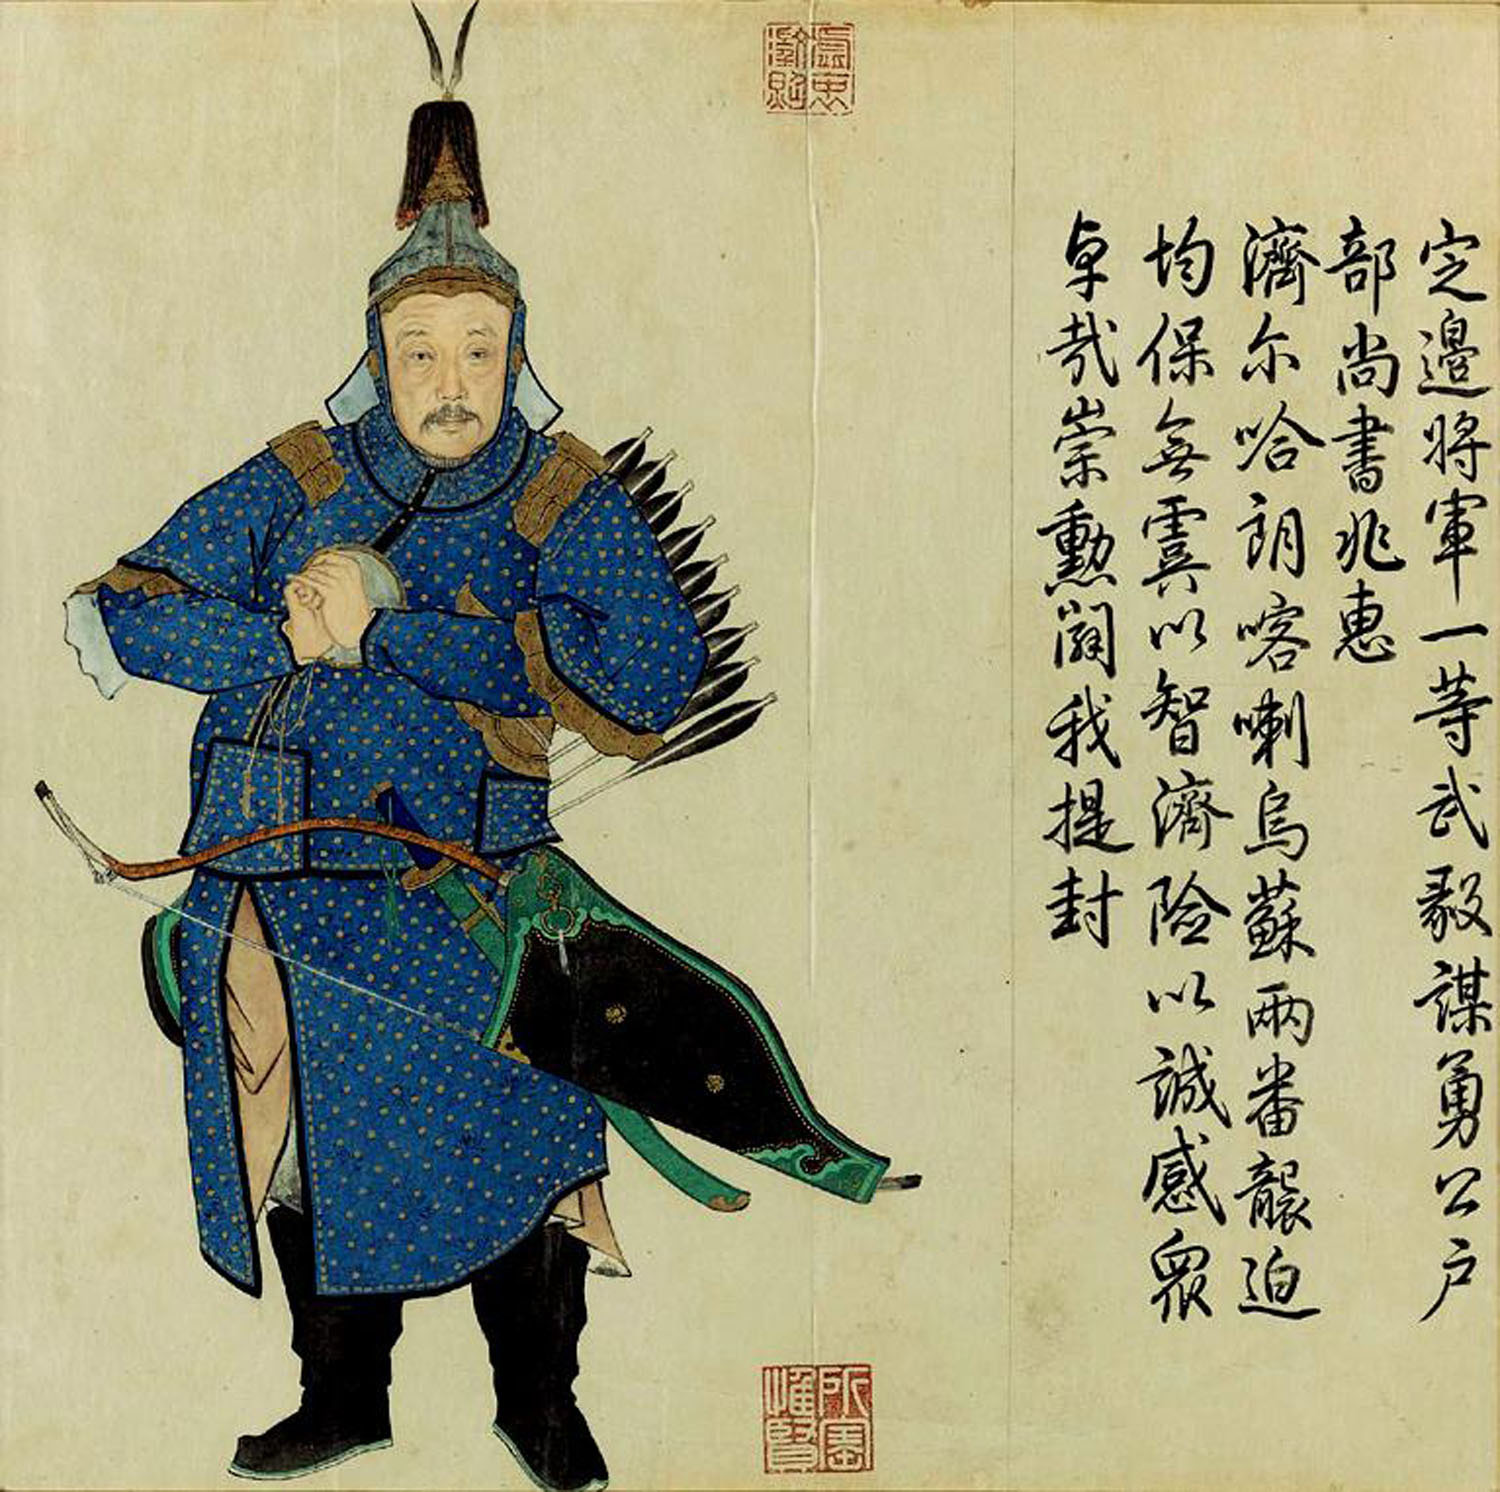 定邊將軍一等武毅謀勇公户
部尚書兆惠
濟尔哈朗喀喇烏蘇兩番襲迫
均保無虞以智濟險以誠感眾
卓哉崇勳闢我提封
所寶惟賢